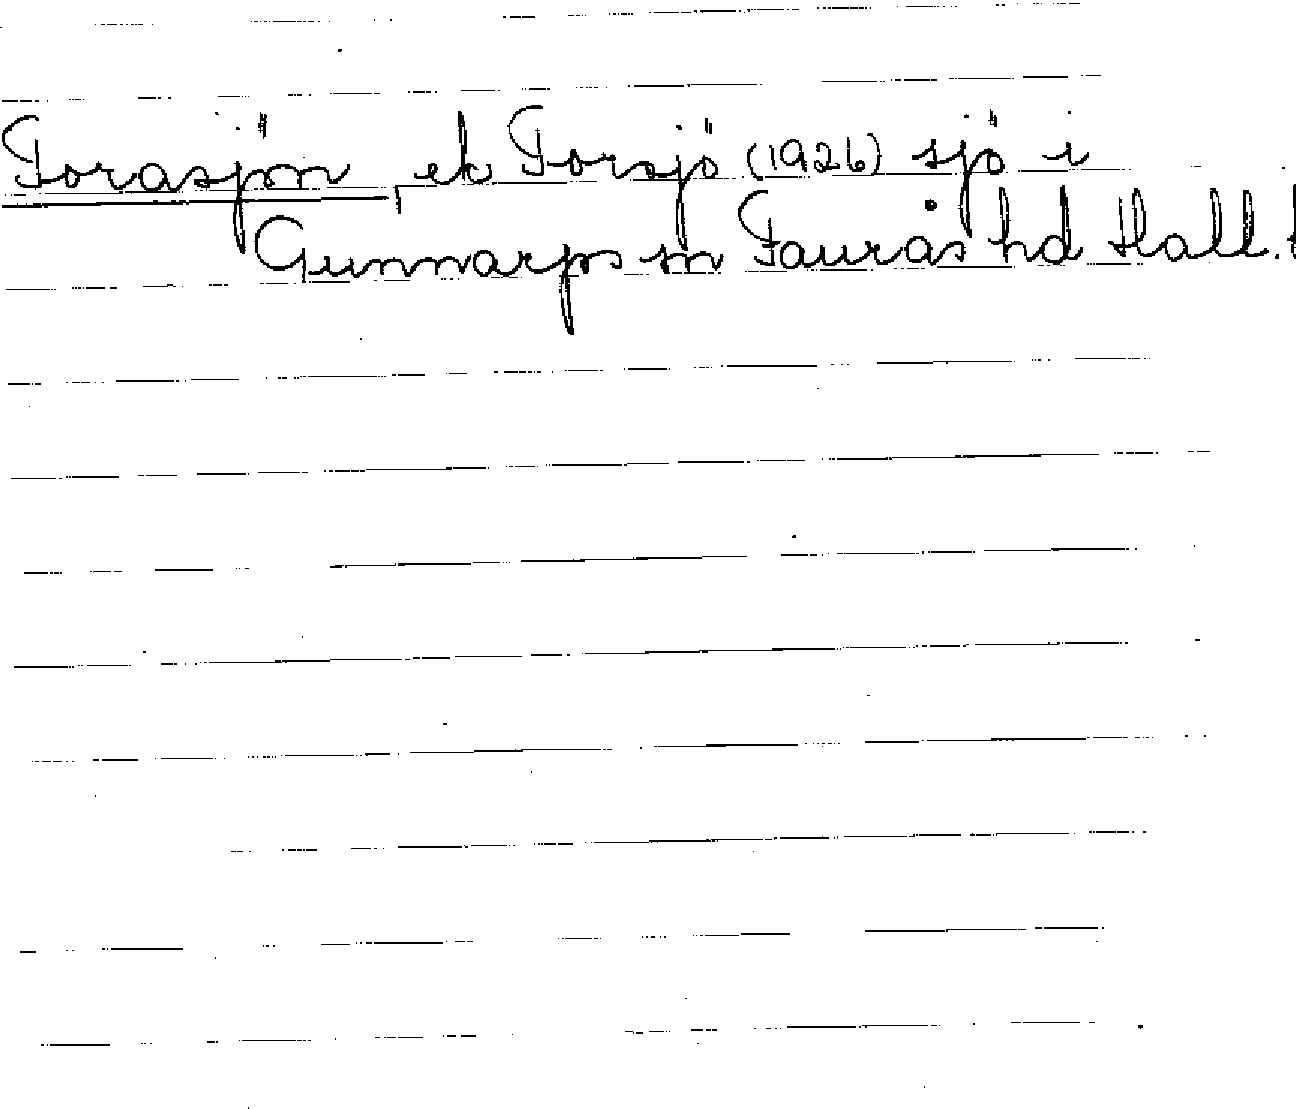 Forasjön, ek Forsjö (1926) sjö i
Gunnarps sn Faurås hd Hall.